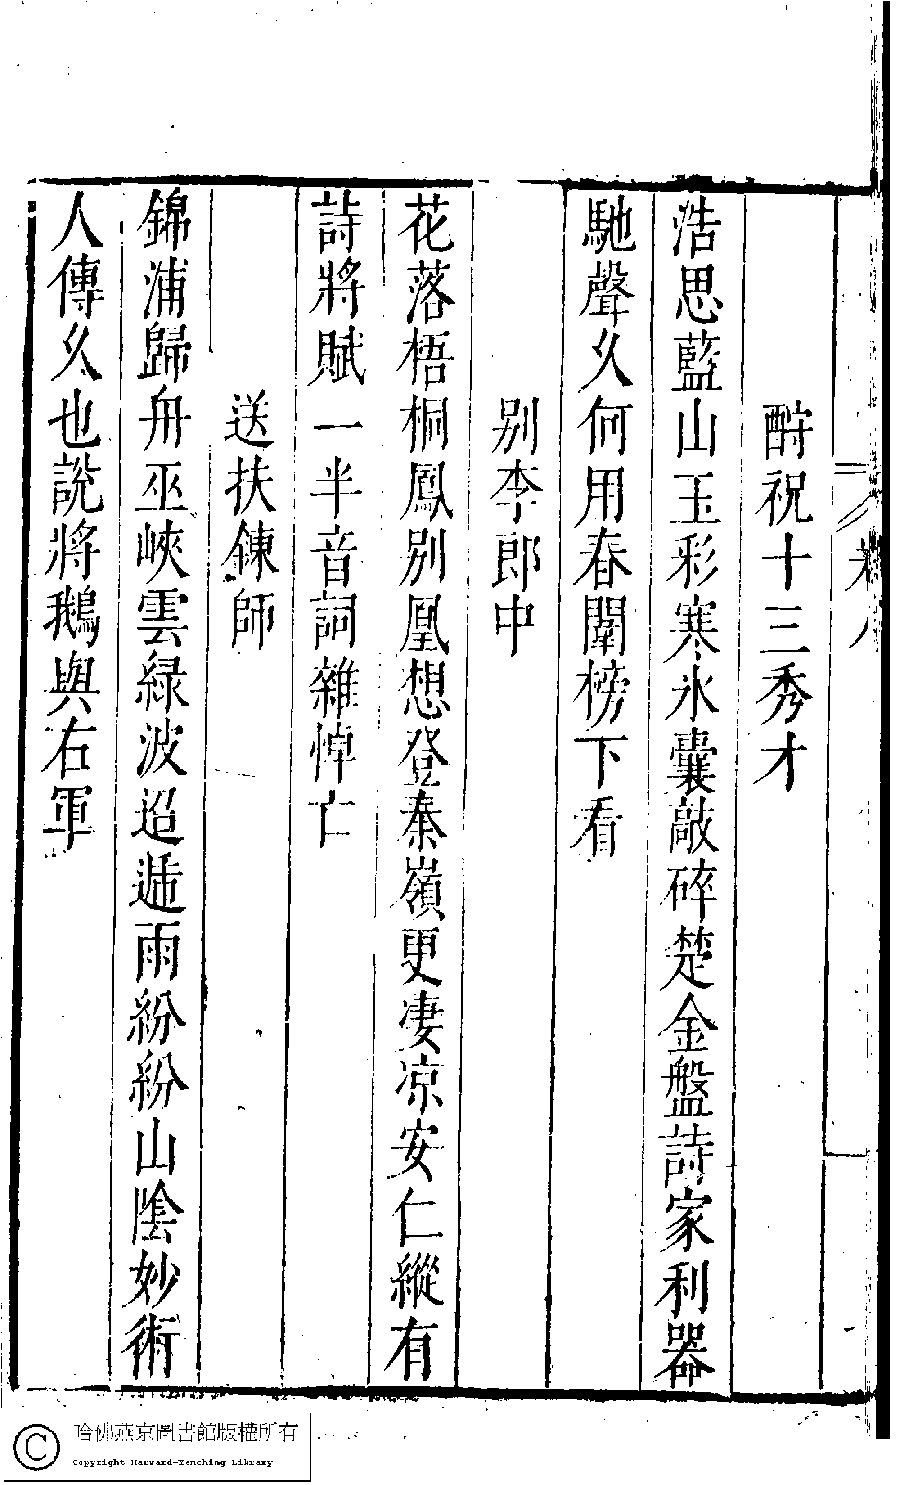 卷八
酧祝十三秀才
浩思藍山玉彩寒氷囊敲碎楚金盤詩家利器
馳聲久何用春闈榜下看
别李郎中
花落梧桐鳳别凰想登秦嶺更凄凉安仁縱有
詩將賦一半音詞雜悼亡
送扶鍊師
錦浦歸舟巫峽雲緑波迢遞雨紛紛山陰妙術
人傳久也說將鵝與右軍
哈佛燕京圖書館版權所有
Copyright Harvard-Yenching Library